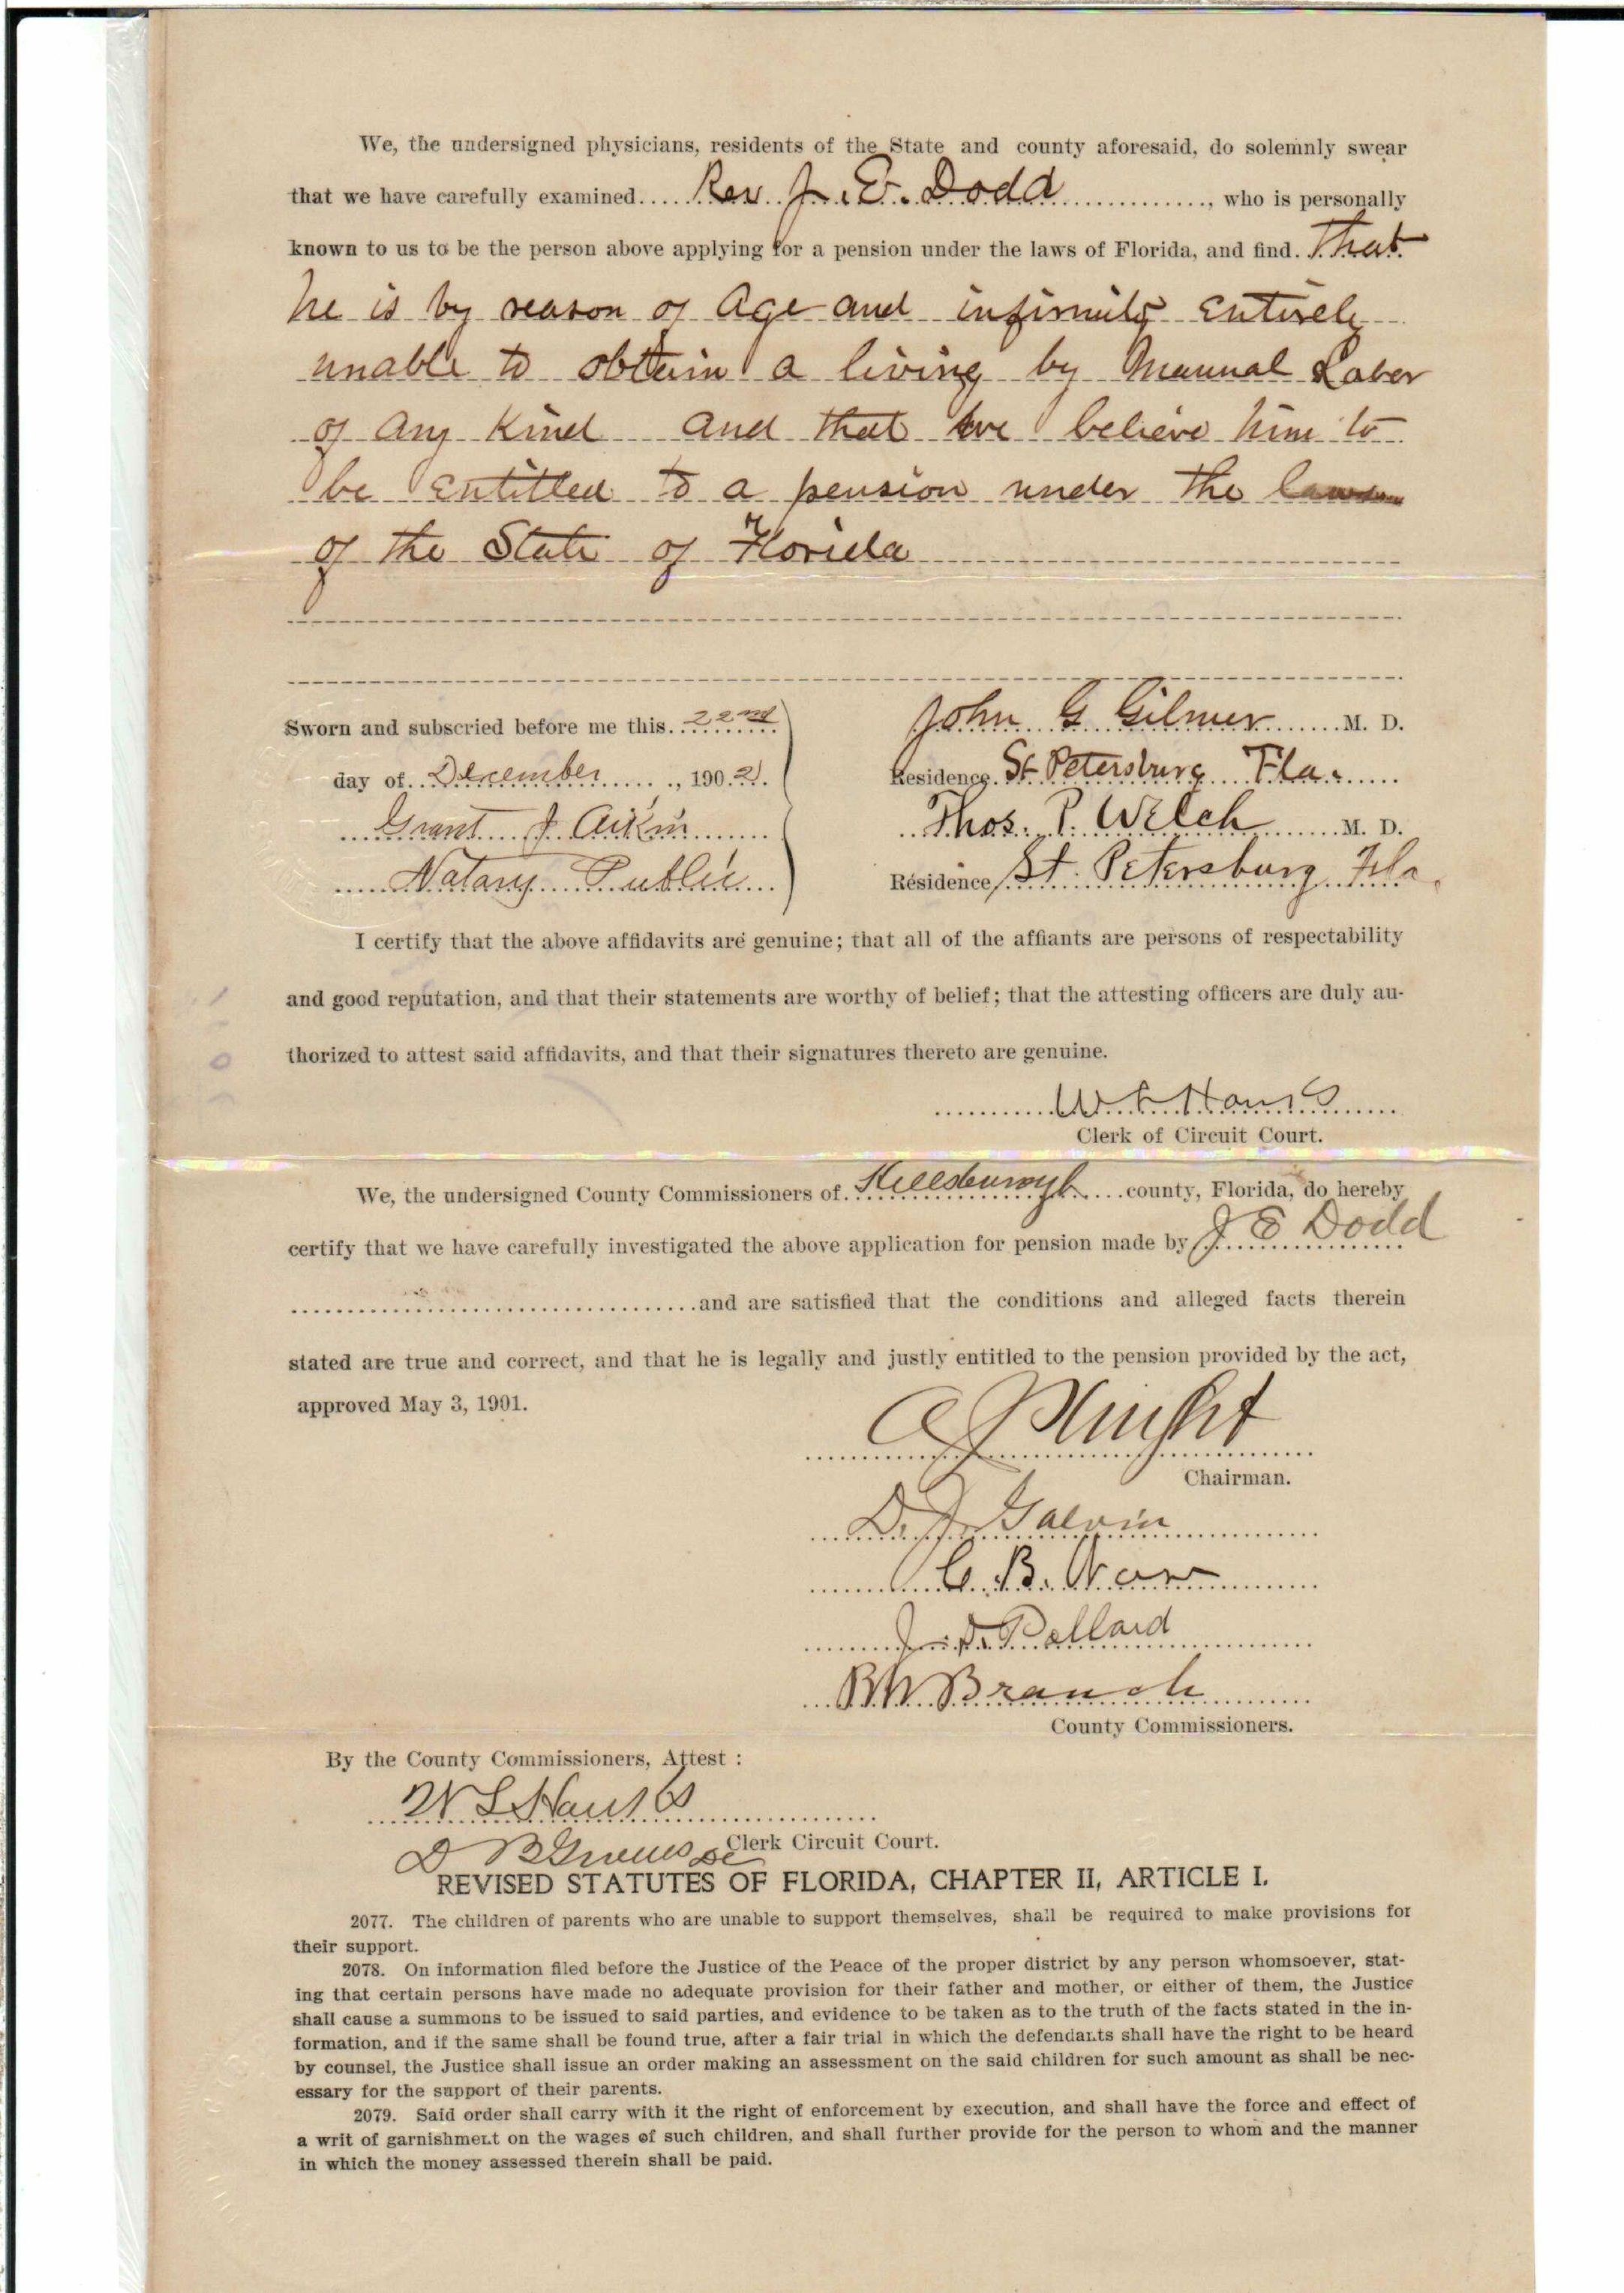 We, the undersigned physicians, residents of the State and county aforesaid, do solemnly swear
that we have carefully examined..... Rev. J. E. Dodd .............., who is personally
known to us to be the person above applying for a pension under the laws of Florida, and find. That
he is by reason of Age and infirmity Entirely
unable to obtain a living by Manual Labor
of any Kind and that we believe him to
be Entitled to a pension under the laws
of the State of Florida
Sworn and subscried before me this. 22nd
day of. December ......, 1902.
Grant J Aikin
Notary Public
John G Gilmer ...... M. D.
Residence. St Petersburg Fla.
Thos. P. Welch ...... M. D.
Residence St. Petersburg Fla.
I certify that the above affidavits are genuine; that all of the affiants are persons of respectability
and good reputation, and that their statements are worthy of belief; that the attesting officers are duly au-
thorized to attest said affidavits, and that their signatures thereto are genuine.
Clerk of Circuit Court.
We, the undersigned County Commissioners of. Hillsborough .... county, Florida, do hereby
certify that we have carefully investigated the above application for pension made by J. E Dodd
and are satisfied that the conditions and alleged facts therein
stated are true and correct, and that he is legally and justly entitled to the pension provided by the act,
approved May 3, 1901.
Knight
Chairman.
D. J. Galvin
C. B.
Pollard
Branch
County Commissioners.
By the County Commissioners, Attest :
Clerk Circuit Court.
D B
REVISED STATUTES OF FLORIDA, CHAPTER II, ARTICLE I.
2077. The children of parents who are unable to support themselves, shall be required to make provisions for
their support.
2078. On information filed before the Justice of the Peace of the proper district by any person whomsoever, stat-
ing that certain persons have made no adequate provision for their father and mother, or either of them, the Justice
shall cause a summons to be issued to said parties, and evidence to be taken as to the truth of the facts stated in the in-
formation, and if the same shall be found true, after a fair trial in which the defendants shall have the right to be heard
by counsel, the Justice shall issue an order making an assessment on the said children for such amount as shall be nec-
essary for the support of their parents.
2079. Said order shall carry with it the right of enforcement by execution, and shall have the force and effect of
a writ of garnishment on the wages of such children, and shall further provide for the person to whom and the manner
in which the money assessed therein shall be paid.